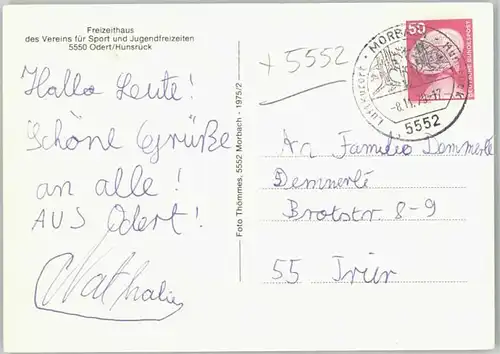 Freizeithaus
des Vereins für Sport und Jugendfreizeiten
5550 Odert/Hunsrück
Hallo Leute!
Schöne Grüße
an alle!
AUS Odert!
Nathalie
Foto Thömmes, 5552 Morbach - 1975/2
+ 5552
50
DEUTSCHE BUNDESPOST
MORBACH
Luftkurort
-8.11.79-17
5552
An Familie Dommerle
Demnerlé
Brotstr. 8-9
55 Trier